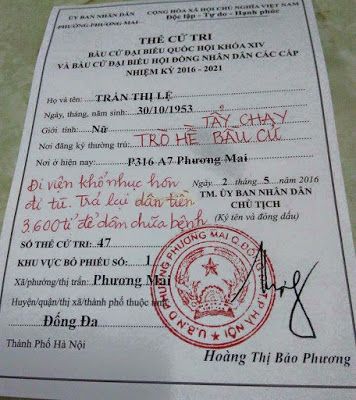 ỦY BAN NHÂN DÂN
PHƯỜNG PHƯƠNG MAI
CỘNG HÒA XÃ HỘI CHỦ NGHĨA VIỆT NAM
Độc lập - Tự do - Hạnh phúc
THẺ CỬ TRI
BẦU CỬ ĐẠI BIỂU QUỐC HỘI KHÓA XIV
VÀ BẦU CỬ ĐẠI BIỂU HỘI ĐỒNG NHÂN DÂN CÁC CẤP
NHIỆM KỲ 2016 - 2021
Họ và tên: TRẦN THỊ LỆ
Ngày, tháng, năm sinh: 30/10/1953
TẨY CHAY
Giới tính: Nữ
TRÒ HỀ BẦU CỬ
Nơi đăng ký thường trú:
Nơi ở hiện nay: P316 A7 Phương Mai
Đi viện khổ nhục hơn
đi tù. Trả lại dân tiền
3.600 tỉ để dân chữa bệnh
Ngày 2 tháng 5 năm 2016
TM. ỦY BAN NHÂN DÂN
CHỦ TỊCH
(Ký tên và đóng dấu)
SỐ THẺ CỬ TRI: 47
KHU VỰC BỎ PHIẾU SỐ: 1
Xã/phường/thị trấn: Phương Mai
Huyện/quận/thị xã/thành phố thuộc tỉnh:
Đống Đa
Thành Phố Hà Nội
U.B.N.D PHƯỜNG PHƯƠNG MAI Q.ĐỐNG ĐA T.P HÀ NỘI
Hoàng Thị Bảo Phương